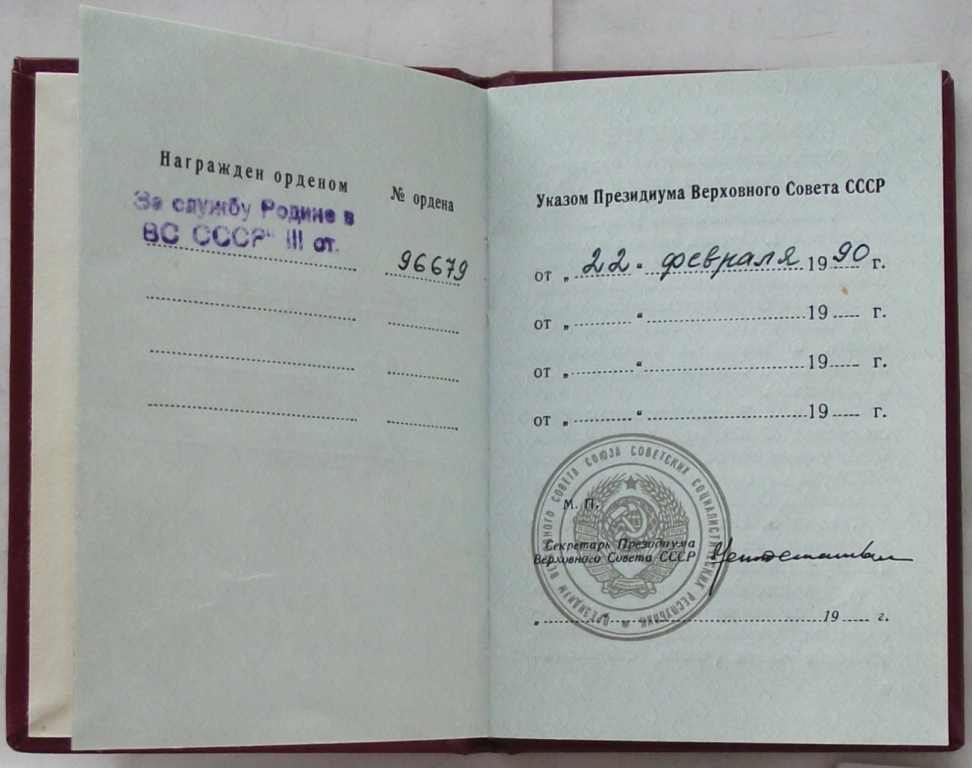 Награжден орденом
№ ордена
За службу Родине в
ВС СССР" III ст.
96679
Указом Президиума Верховного Совета СССР
от „ 22 “ февраля 1990 г.
от „ “ 19 г.
от „ “ 19 г.
от „ “ 19 г.
ПРЕЗИДИУМ ВЕРХОВНОГО СОВЕТА СОЮЗА СОВЕТСКИХ СОЦИАЛИСТИЧЕСКИХ РЕСПУБЛИК
М. П.
Секретарь Президиума
Верховного Совета СССР
„ “ 19 г.